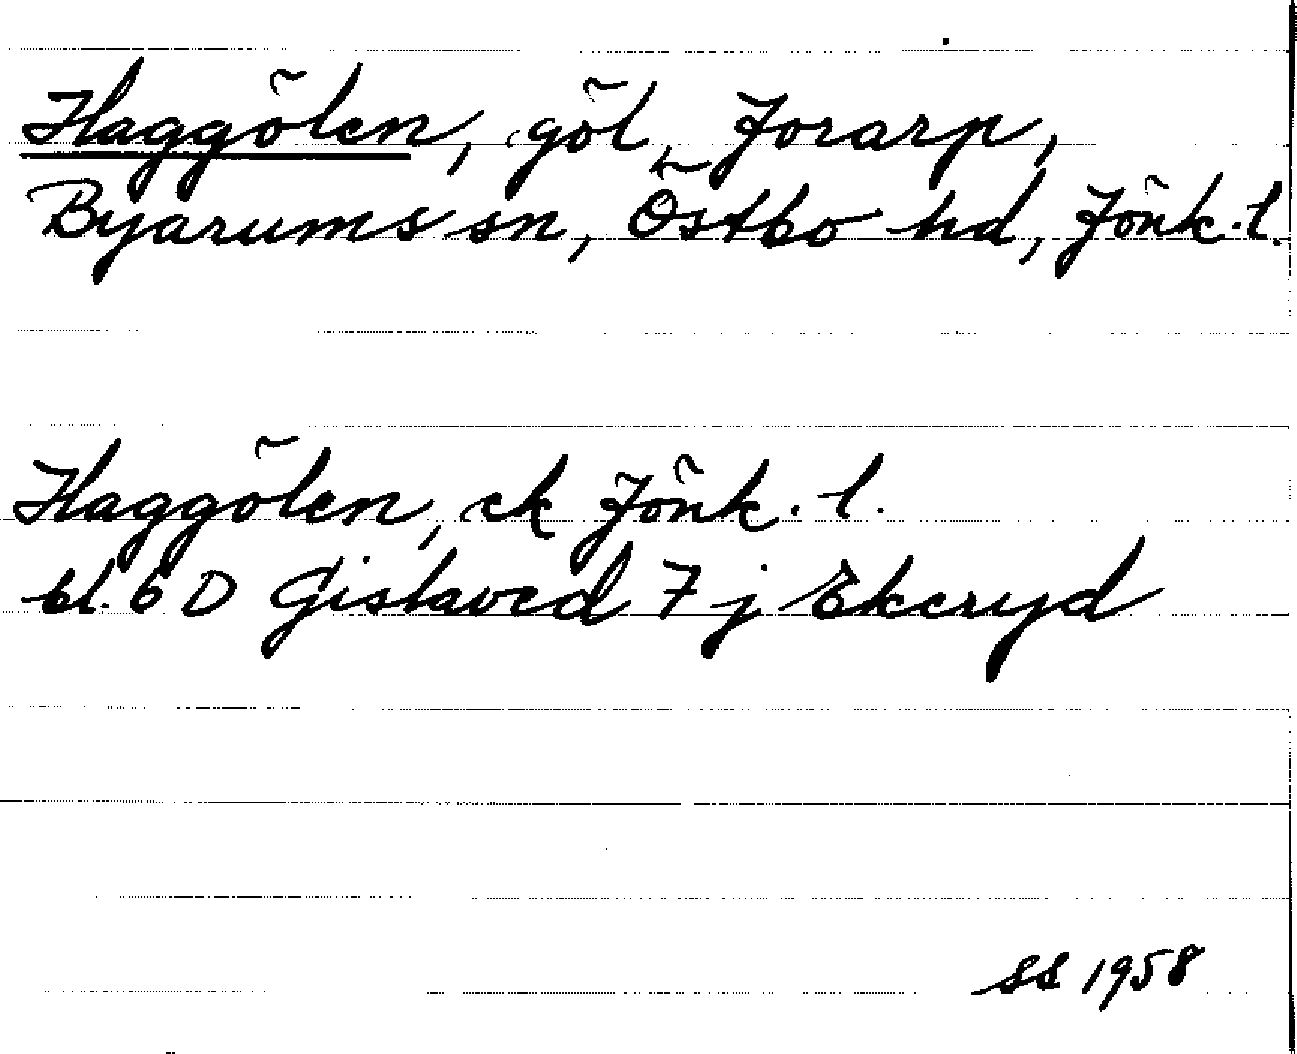 Haggölen, göl, Jorarp,
Byarums sn, Östbo hd, Jönk. l.
Haggölen, ek Jönk. l.
bl. 6 D Gislaved 7 j Ekeryd
SS 1958